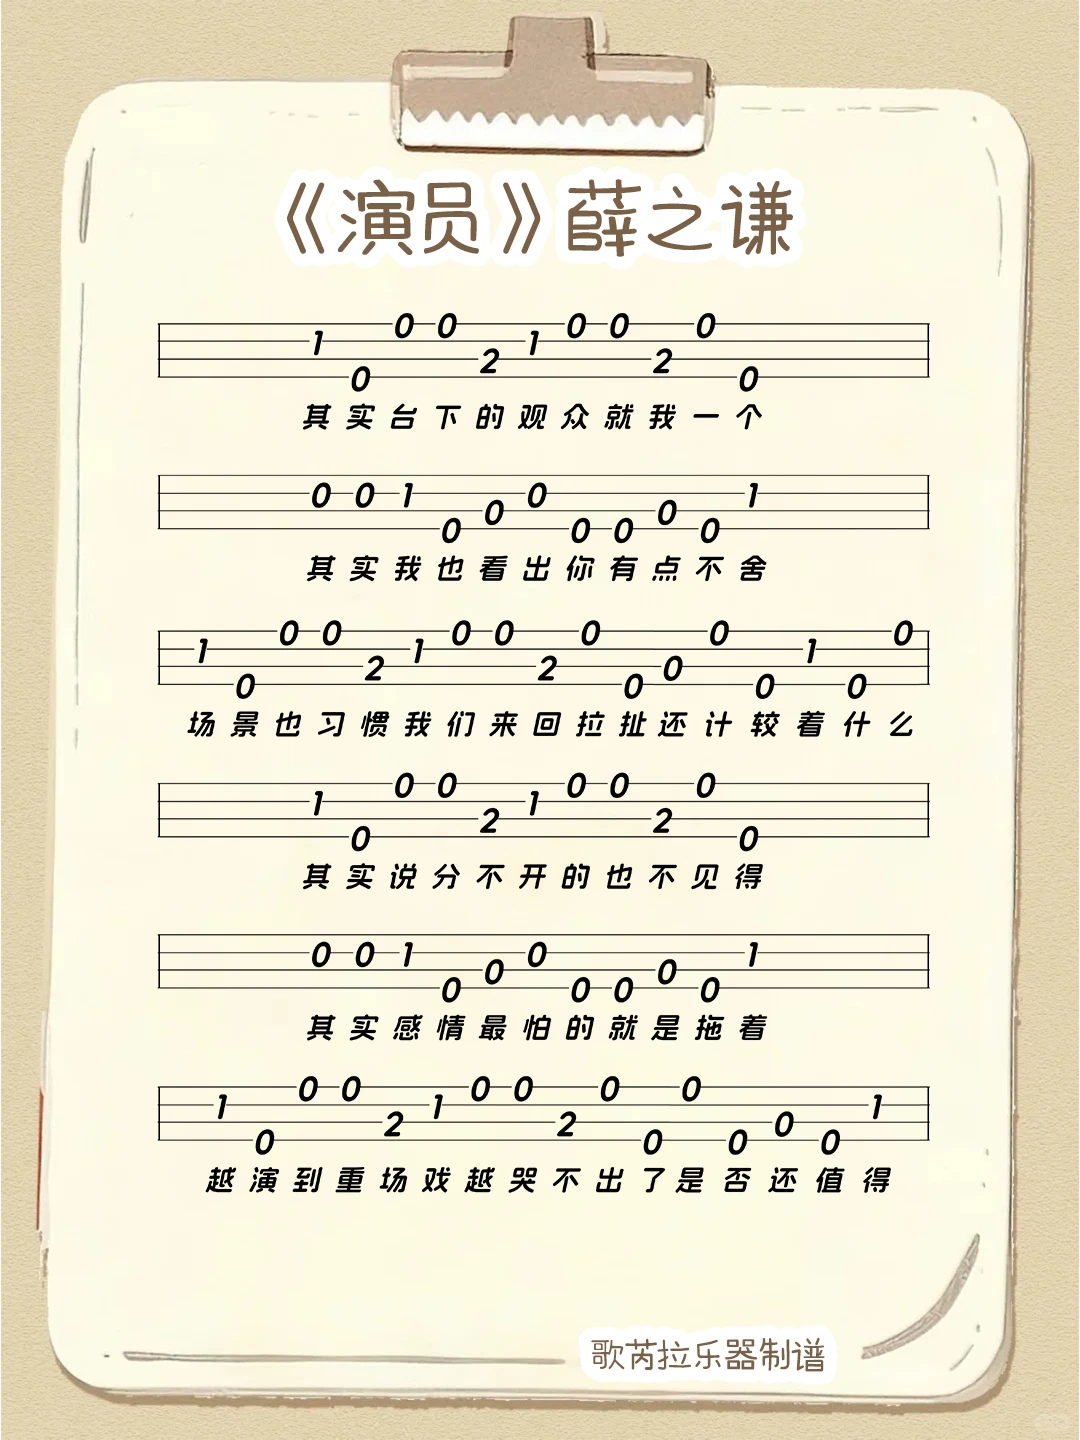 《演员》薛之谦
1 0 0 0 2 1 0 0 2 0 0
其实台下的观众就我一个
0 0 1 0 0 0 0 0 0 0 1
其实我也看出你有点不舍
1 0 0 0 2 1 0 0 2 0 0 0 0 0 1 0 0
场景也习惯我们来回拉扯还计较着什么
1 0 0 0 2 1 0 0 2 0 0
其实说分不开的也不见得
0 0 1 0 0 0 0 0 0 0 1
其实感情最怕的就是拖着
1 0 0 0 2 1 0 0 2 0 0 0 0 0 0 1
越演到重场戏越哭不出了是否还值得
歌芮拉乐器制谱